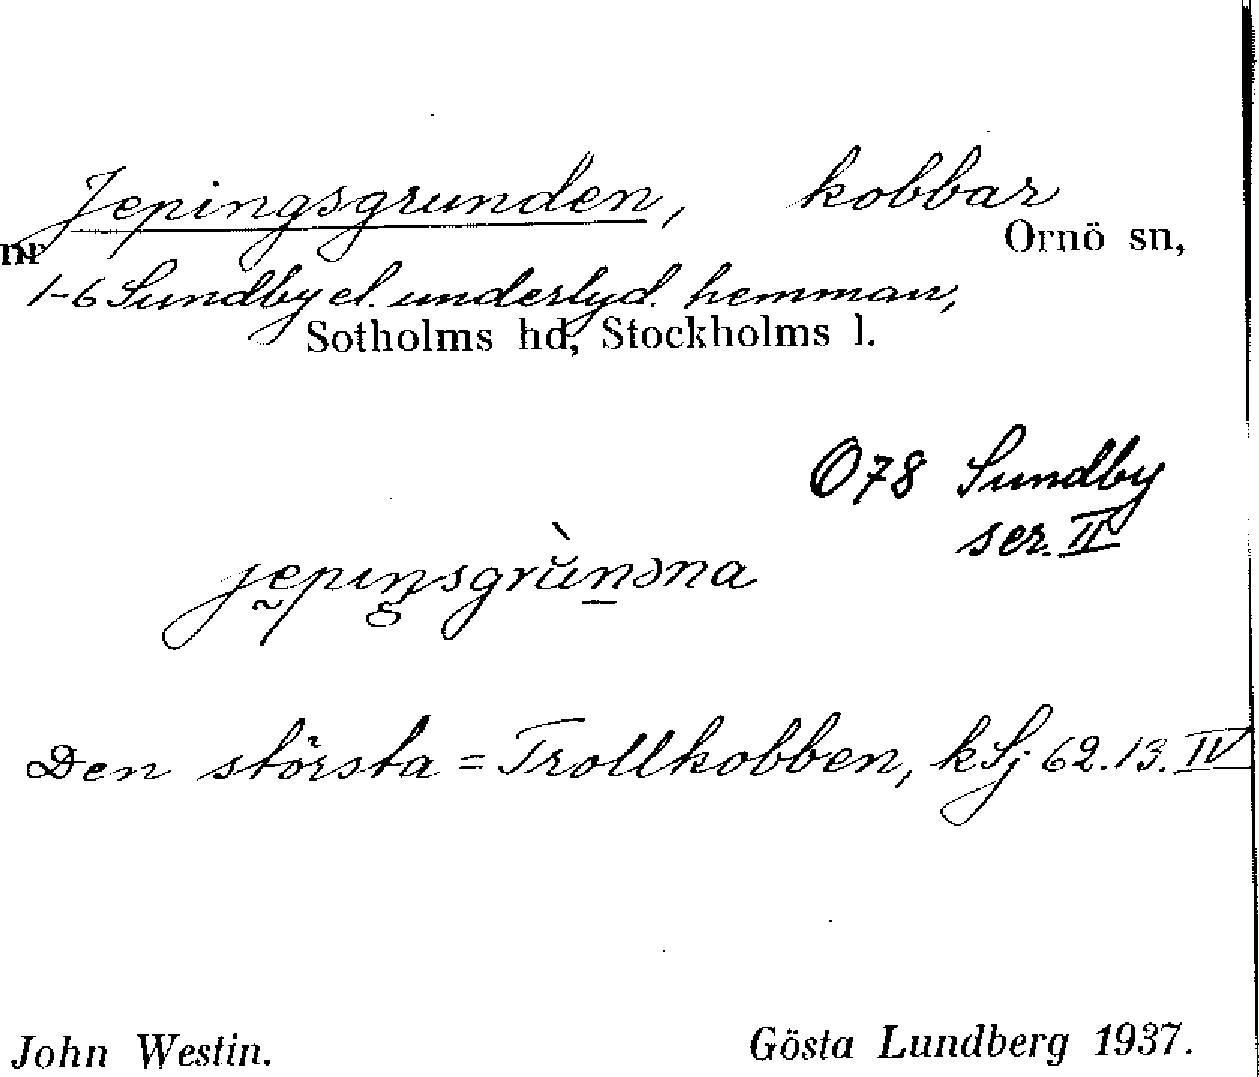 Jepingsgrunden, kobbar
nr Ornö sn,
1-6 Sundby el. underlyd. hemman,
Sotholms hd, Stockholms l.
O78 Sundby
ser. II
Den största = Trollkobben, kSj 62.13. IV
John Westin. Gösta Lundberg 1937.